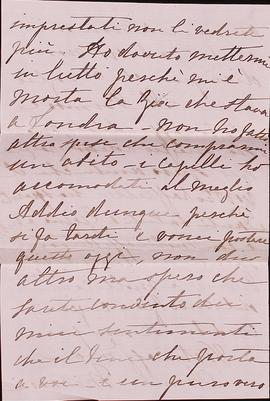 imprestati non li vedrete
più. Ho dovuto mettermi
in lutto perché mi è
morta la Zia che stava
a Londra – non ho fatto
altre spese che comprarmi
un abito – i capelli ho
accomodati al meglio
Addio dunque perché
si fa tardi e vorrei postare
questo oggi, non dico
altro ma spero che
sarete convinto dei
miei sentimenti
che il bene che porto
a voi è un puro vero